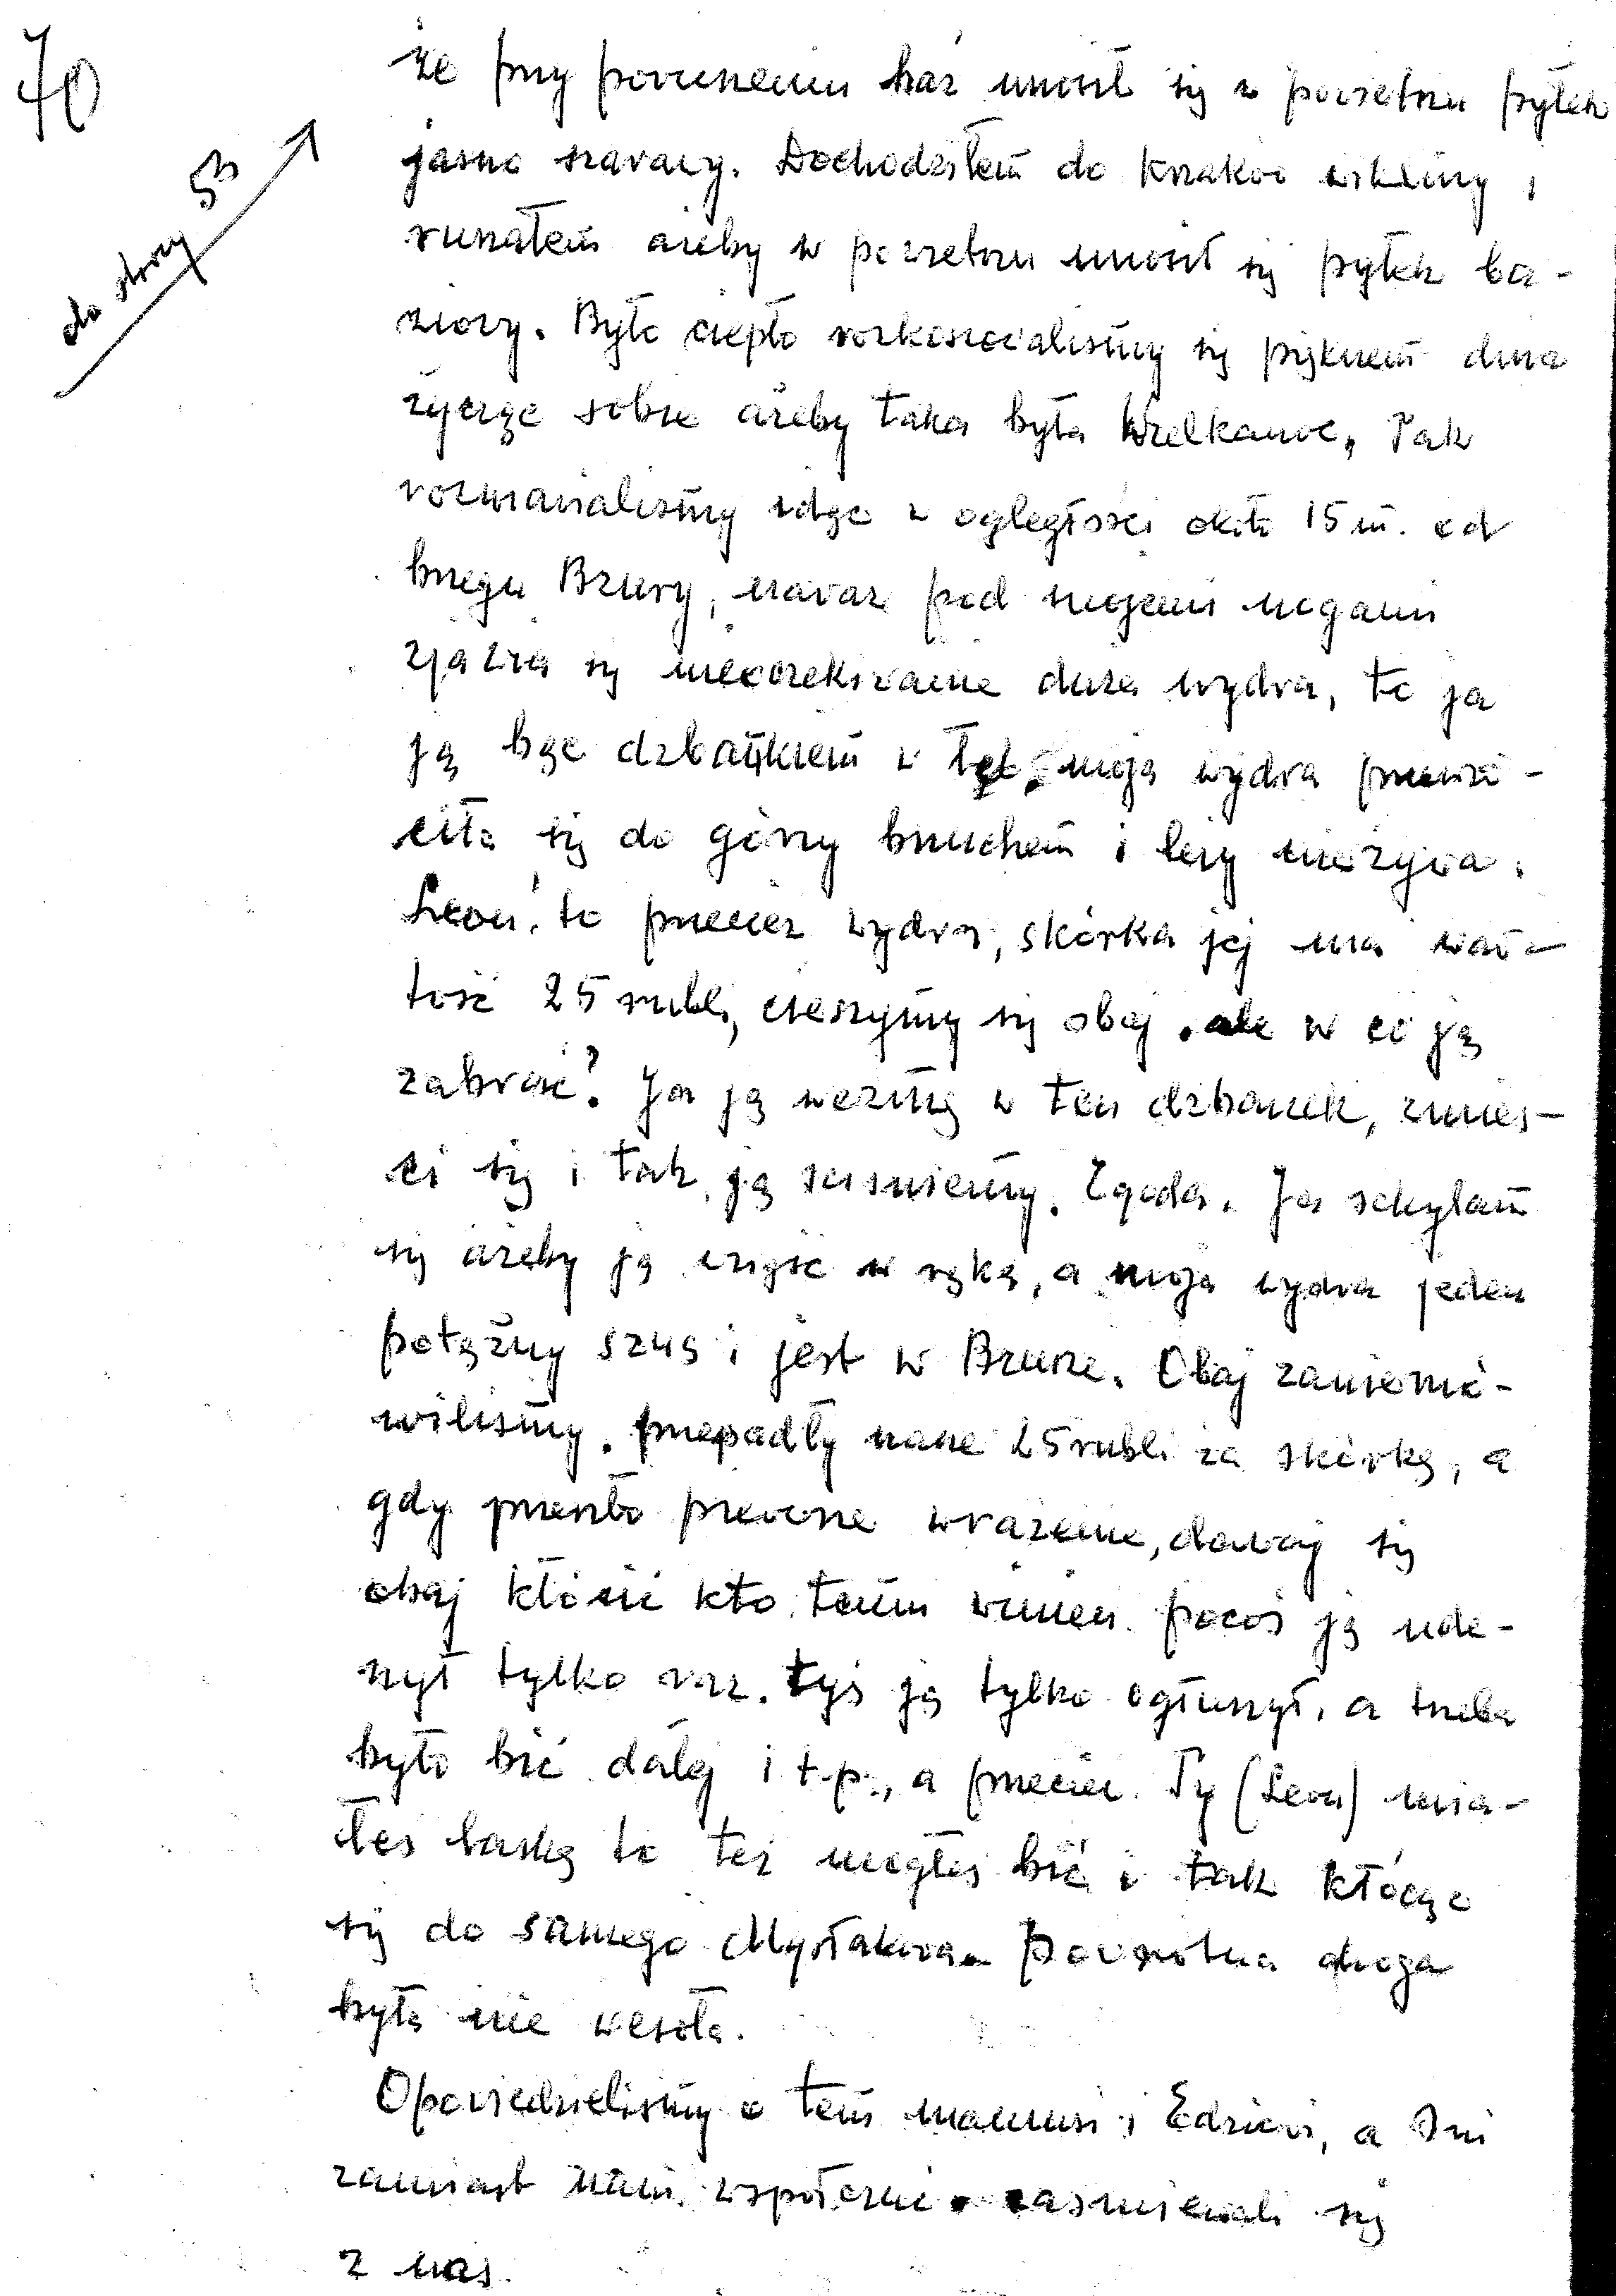 70
do strony 53
że przy poruszeniu baź unosił się w powietrzu pyłek
jasno szarawy. Dochodziłem do krzaków wikliny i
ruszałem ażeby w powietrzu unosił się pyłek ba-
ziowy. Było ciepło rozkoszowaliśmy się pięknem dnia
życząc sobie ażeby taka była Wielkanoc. Tak
rozmawialiśmy idąc w ogległości około 15 m. od
brzegu Bzury, naraz pod mojemi nogami
zjawia się nieoczekiwanie duża wydra, to ja
ją bęc dzbankiem w łeb, moja wydra przewró-
ciła się do góry brzuchem i leży nieżywa.
Leon, to przecież wydra, skórka jej ma war-
tość 25 rubli, cieszymy się obaj. ale w co ją
zabrać? Ja ją wezmę w ten dzbanek, zmieś-
ci się i tak ją zaniesiemy. Zgoda. Ja schylam
się ażeby ją wziąść w rękę, a moja wydra jeden
potężny szus i jest w Bzurze. Obaj zaniemó-
wiliśmy. przepadły nasze 25 rubli za skórkę, a
gdy przeszło pierwsze wrażenie, dawaj się
obaj kłócić kto temu winien. pocoś ją ude-
rzył tylko raz. tyś ją tylko ogłuszył, a trzeba
było bić dalej i t.p., a przecież Ty (Leon) mia-
łeś laskę to też mogłeś bić i tak kłócąc
się do samego Mysłakowa. Powrotna droga
była nie wesoła.
Opowiedzieliśmy o tem mamusi i Edziowi, a Oni
zamiast nam współczuć zaśmiewali się
z nas.